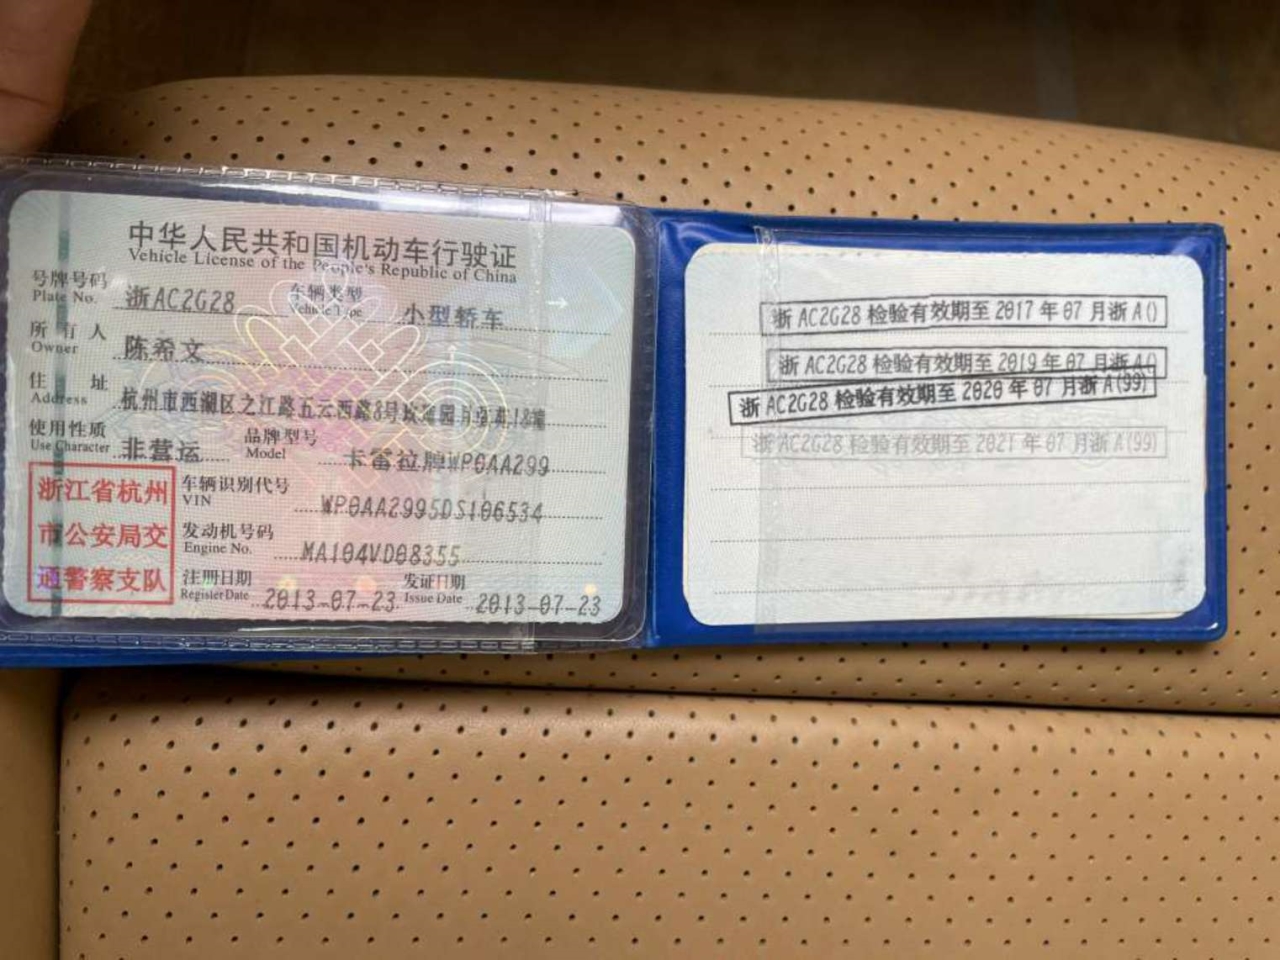 中华人民共和国机动车行驶证
Vehicle License of the People's Republic of China
号牌号码 浙AC2G28 车辆类型 小型轿车
Plate No. Vehicle Type
所有人 陈希文
Owner
住址 杭州市西湖区之江路五云西路8号玫瑰园
Address
使用性质 非营运 品牌型号 卡雷拉牌WP0AA299
Use Character Model
浙江省杭州
市公安局交
通警察支队
车辆识别代号 WP0AA2995DS106534
VIN
发动机号码 MA104VD08355
Engine No.
注册日期 2013-07-23 发证日期 2013-07-23
Register Date Issue Date
浙 AC2G28 检验有效期至 2017 年 07 月浙 A()
浙 AC2G28 检验有效期至 2019 年 07 月浙 A()
浙 AC2G28 检验有效期至 2020 年 07 月浙 A(99)
浙 AC2G28 检验有效期至 2021 年 07 月浙 A(99)